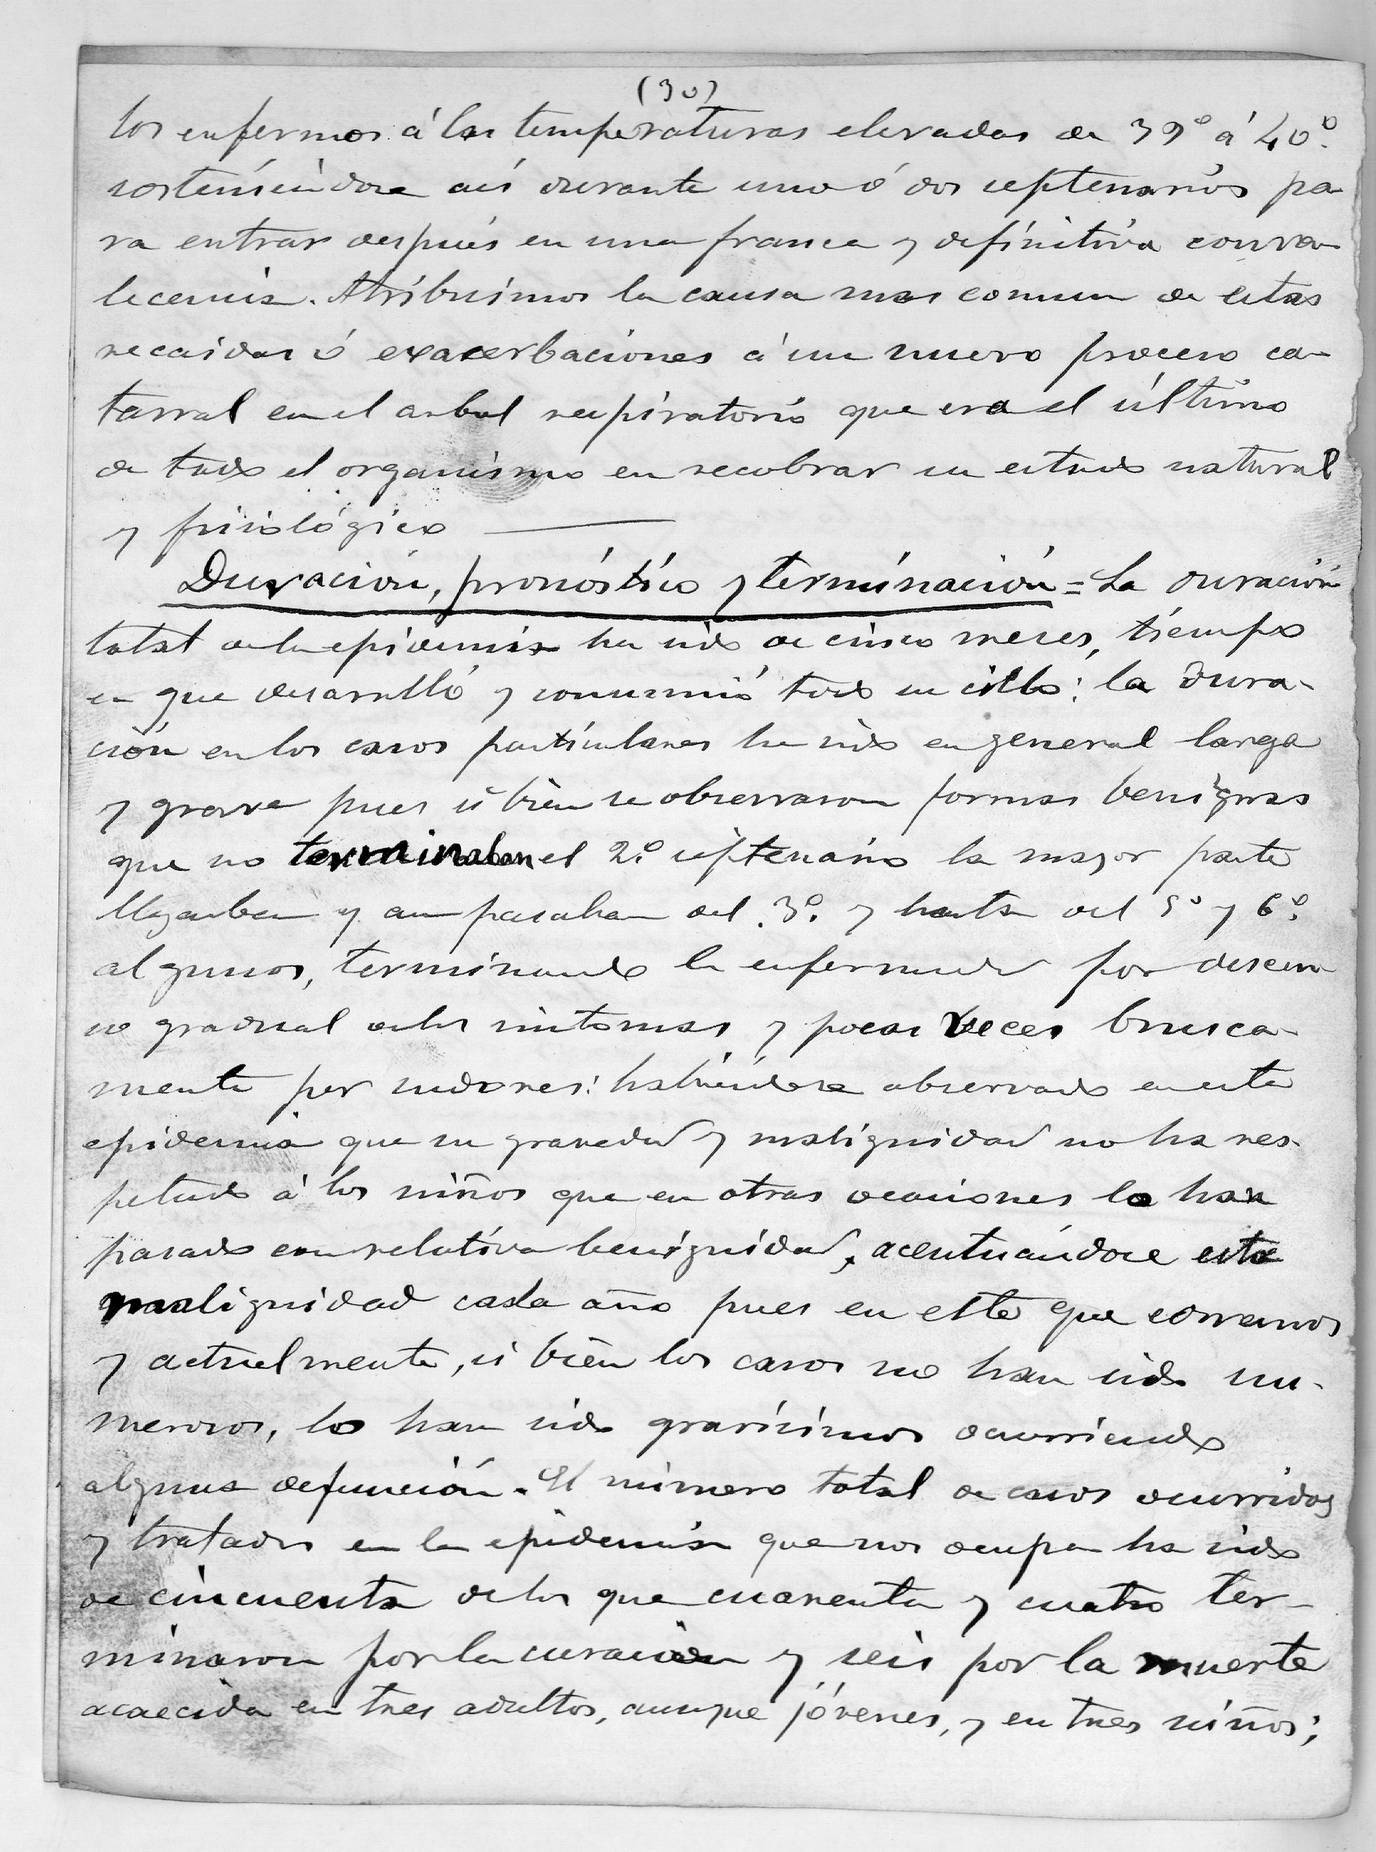 (30)
los enfermos á las temperaturas elevadas de 39º á 40º.
sosteniéndose así durante uno ó dos septenarios pa
ra entrar después en una franca y definitiva conva
lecencia. Atribuimos la causa mas comun de estas
recaidas ó exacerbaciones á un nuevo proceso ca-
tarral en el arbol respiratorio que era el último
de todo el organismo en recobrar su estado natural
y fisiológico
Duración, pronóstico y terminación = La duración
total de la epidemia ha sido de cinco meses, tiempo
en que desarrolló y consumió todo su ciclo: la dura-
ción en los casos particulares ha sido en general larga
y grave pues si bien se observaron formas benignas
que no terminaban el 2.º septenario la mayor parte
llegaban y aun pasaban del 3º. y hasta del 5º y 6º.
algunos, terminando la enfermedad por descen
so gradual de los sintomas y pocas veces brusca-
mente por sudores: habiéndose observado en esta
epidemia que su gravedad y malignidad no ha res-
petado á los niños que en otras ocasiones lo han
pasado con relativa benignidad, acentuándose esta
malignidad cada año pues en este que corremos
y actualmente, si bien los casos no han sido nu-
merosos, lo han sido gravísimos ocurriendo
alguna defunción. El número total de casos ocurridos
y tratados en la epidemia que nos ocupa ha sido
de cincuenta de los que cuarenta y cuatro ter-
minaron por la curación y seis por la muerte
acaecida en tres adultos, aunque jóvenes, y en tres niños;